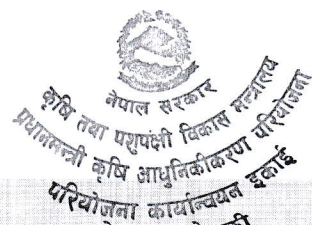 नेपाल सरकार
कृषि तथा पशुपंक्षी विकास मन्त्रालय
प्रधानमन्त्री कृषि आधुनिकीकरण परियोजना
परियोजना कार्यान्वयन इकाई